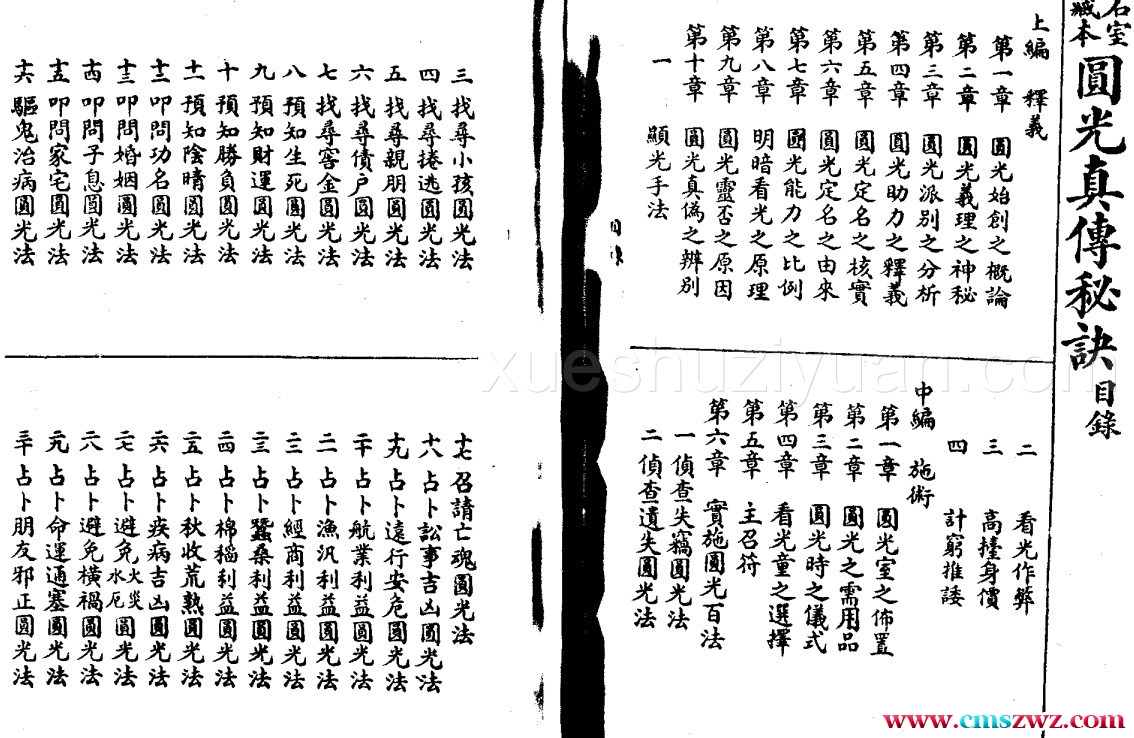 石室
藏本
圓光真傳秘訣目錄
上編 釋義
第一章 圓光始創之概論
第二章 圓光義理之神秘
第三章 圓光派別之分析
第四章 圓光助力之釋義
第五章 圓光定名之核實
第六章 圓光定名之由來
第七章 圓光能力之比例
第八章 明暗看光之原理
第九章 圓光靈否之原因
第十章 圓光真偽之辨別
一 顯光手法
二 看光作弊
三 高擡身價
四 計窮推諉
中編 施術
第一章 圓光室之佈置
第二章 圓光之需用品
第三章 圓光時之儀式
第四章 看光童之選擇
第五章 主召符
第六章 實施圓光百法
一 偵查失竊圓光法
二 偵查遺失圓光法
目錄
三 找尋小孩圓光法
四 找尋捲逃圓光法
五 找尋親朋圓光法
六 找尋債户圓光法
七 找尋窖金圓光法
八 預知生死圓光法
九 預知財運圓光法
十 預知勝負圓光法
十一 預知陰晴圓光法
十二 叩問功名圓光法
十三 叩問婚姻圓光法
十四 叩問子息圓光法
十五 叩問家宅圓光法
十六 驅鬼治病圓光法
十七 召請亡魂圓光法
十八 占卜訟事吉凶圓光法
十九 占卜遠行安危圓光法
二十 占卜航業利益圓光法
二一 占卜漁汎利益圓光法
二二 占卜經商利益圓光法
二三 占卜蠶桑利益圓光法
二四 占卜棉稻利益圓光法
二五 占卜秋收荒熟圓光法
二六 占卜疾病吉凶圓光法
二七 占卜避免火災水厄圓光法
二八 占卜避免橫禍圓光法
二九 占卜命運通塞圓光法
三十 占卜朋友邪正圓光法
xueshuziyuan.com
www.cmszwz.com